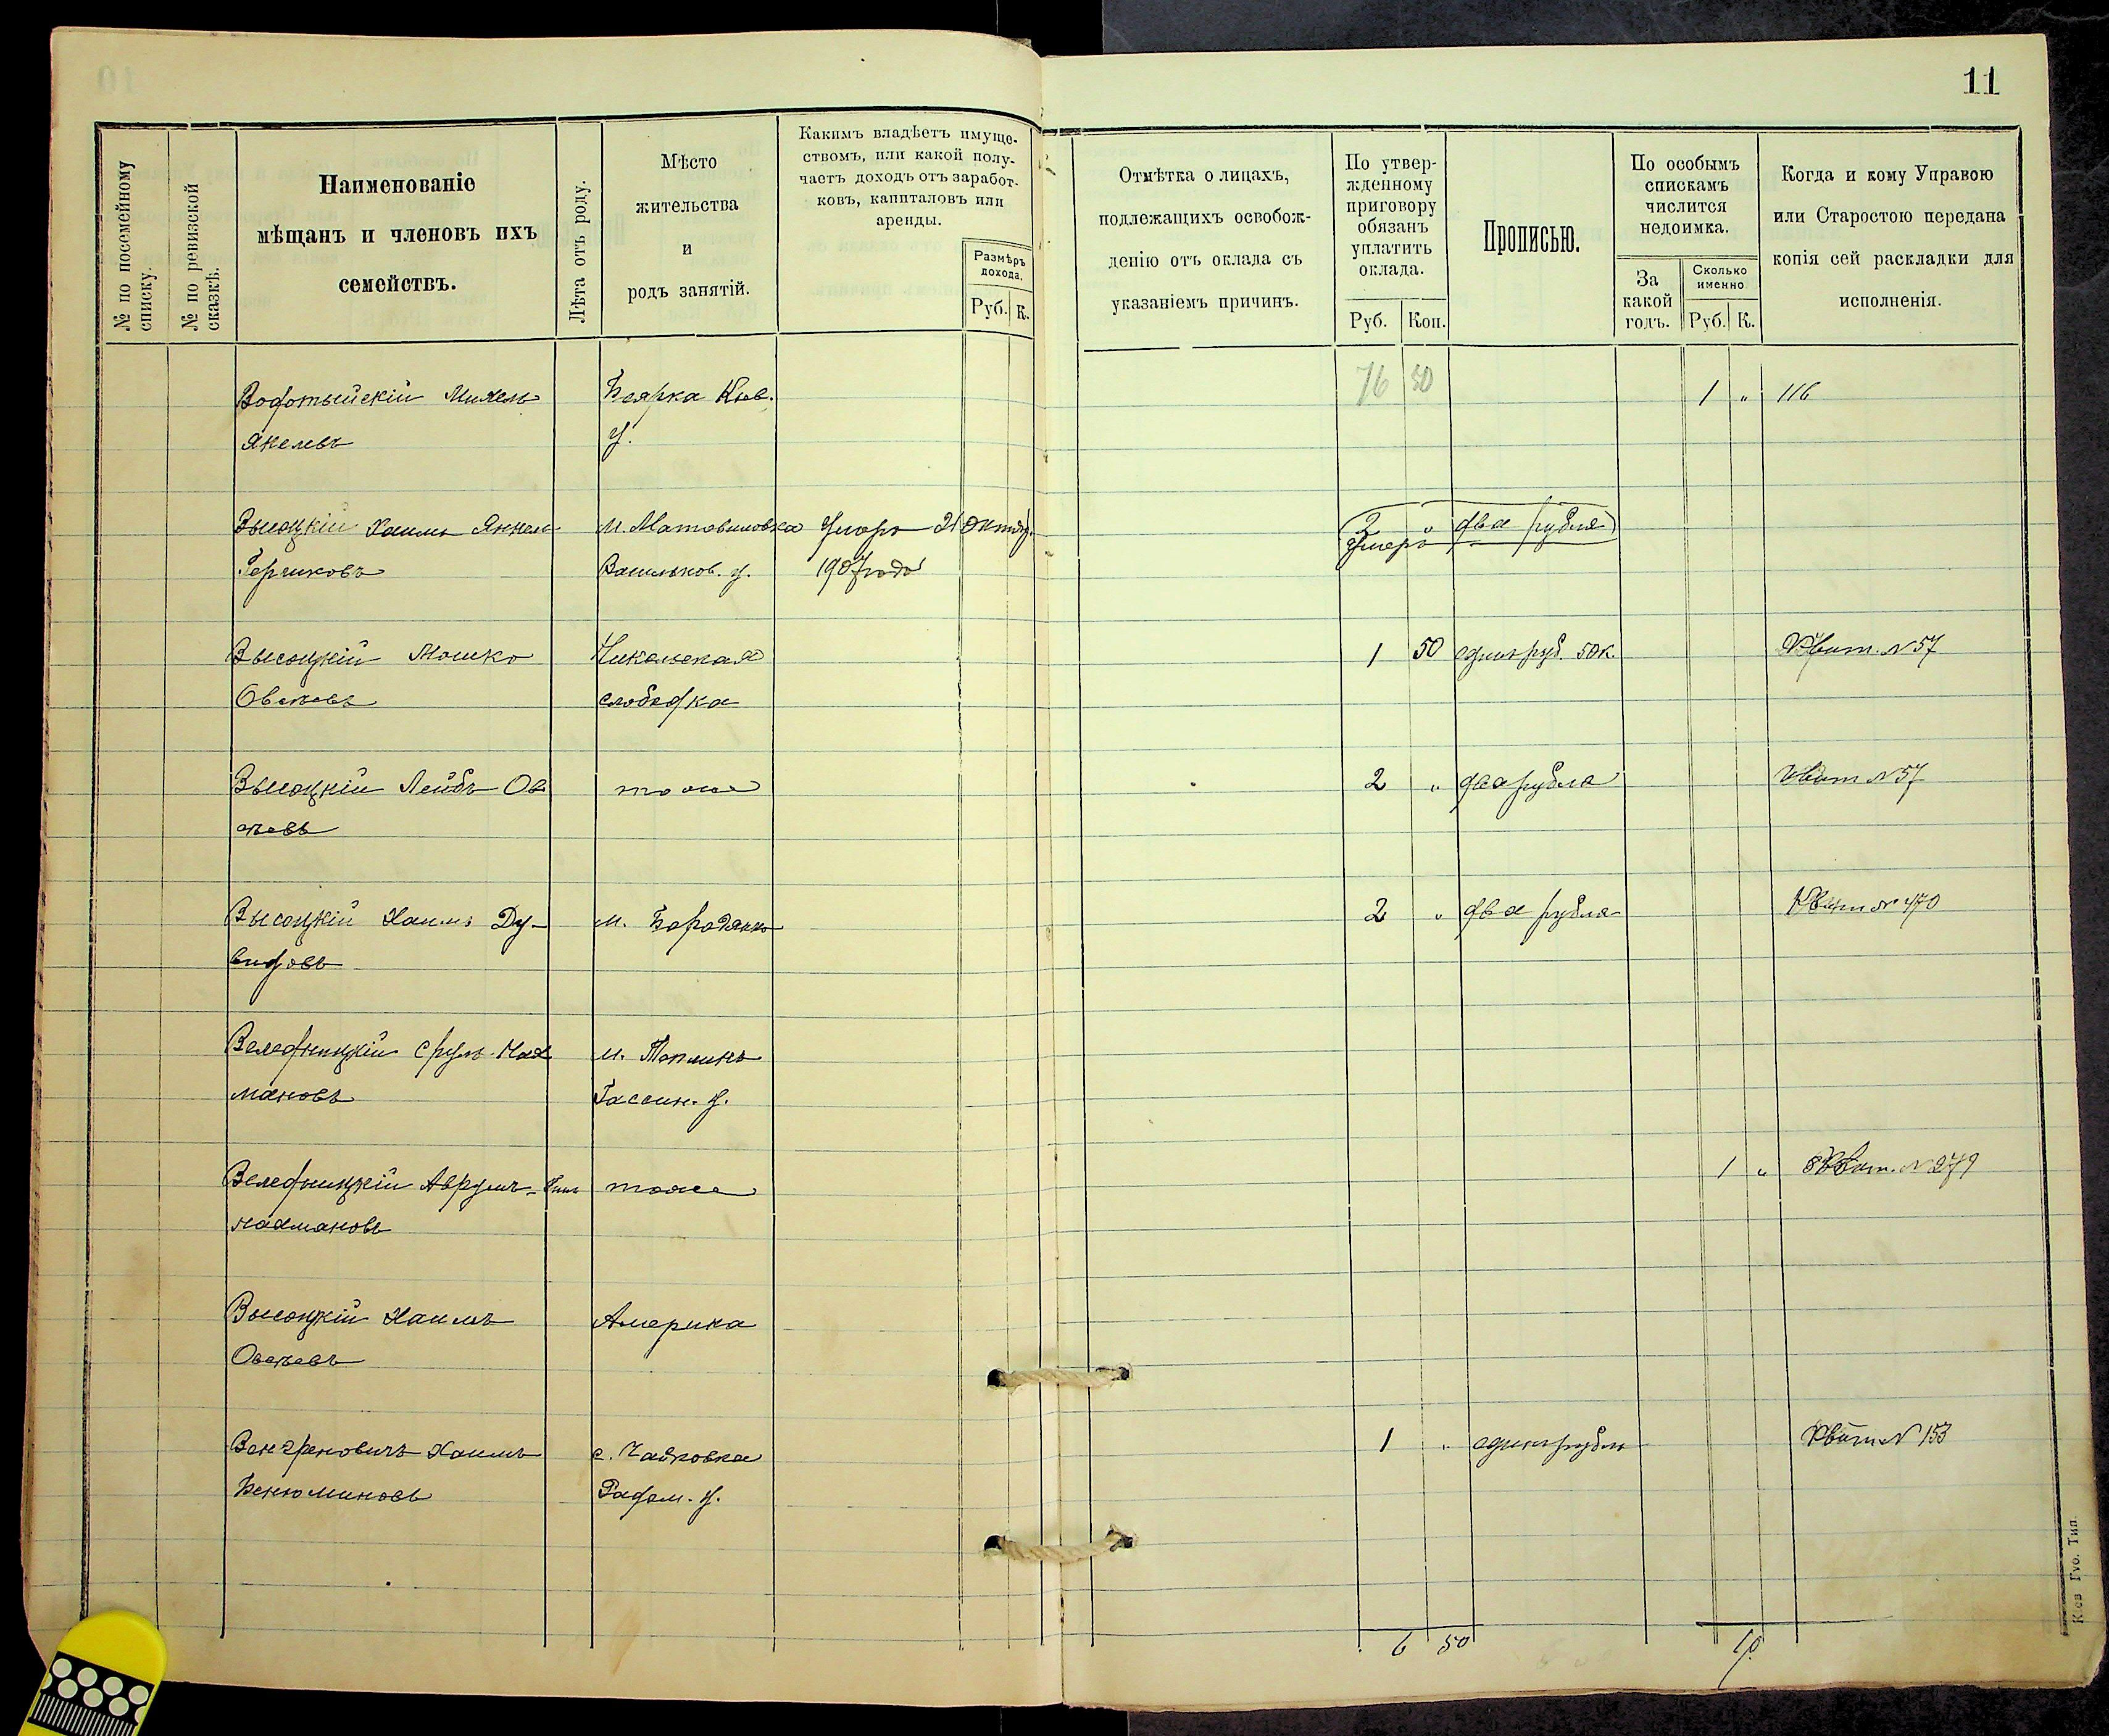 11
№ по посемейному списку.
№ по ревизской сказкѣ.
Наименованіе
мѣщанъ и членовъ ихъ
семействъ.
Лѣта отъ роду.
Мѣсто
жительства
и
родъ занятій.
Какимъ владѣетъ имуще-
ствомъ, или какой полу-
чаетъ доходъ отъ заработ-
ковъ, капиталовъ или
аренды.
Размѣръ
дохода.
Руб. К.
Отмѣтка о лицахъ,
подлежащихъ освобож-
денію отъ оклада съ
указаніемъ причинъ.
По утвер-
жденному
приговору
обязанъ
уплатить
оклада.
Руб. Коп.
Прописью.
По особымъ
спискамъ
числится
недоимка.
За
какой
годъ.
Сколько
именно
Руб. К.
Когда и кому Управою
или Старостою передана
копія сей раскладки для
исполненія.
Водотыйскій Михель Боярка Кіев. 76 50 1 " 116
Янкелевъ у.
Высоцкій Хаимъ Янкель м. Мотовиловка Умеръ 21 Октяб. 2 " два рубля
Умеръ
Герчиковъ Васильков. у. 1907 года
Высоцкій Мошко Никольская 1 50 одинъ руб. 50 к. Квит. № 57
Овсеевъ слободка
Высоцкій Лейбъ Ов тоже 2 " два рубля Квит № 57
сеевъ
Высоцкій Хаимъ Ду- м. Бородянка 2 " два рубля Квит № 470
видовъ
Веледницкій Сруль Нах м. Тетіевъ
мановъ у.
Веледницкій Аврумъ тоже 1 " Квит. № 279
Нахмановъ
Высоцкій Хаимъ Америка
Овсеевъ
Венгреновичъ Хаимъ с. Чайковка 1 " одинъ рубль Квит № 153
Бенюминовъ Радом. у.
6 50